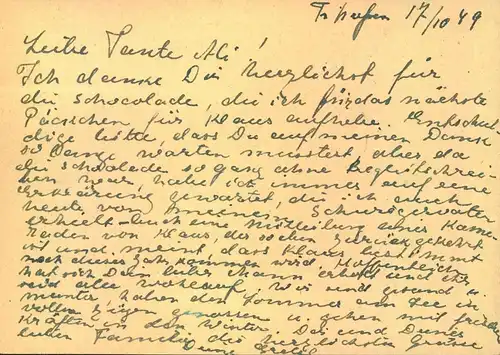 17/10 49
Liebe Tante Ali!
Ich danke Dir herzlichst für
die Schocolade, die ich für das nächste
Päckchen für Klaus aufhebe. Entschul-
dige bitte, dass Du auf meinen Dank
so lange warten musstest aber da
die Schocolade so ganz ohne Begleitschrei-
ben war, habe ich immer auf eine
Erklärung gewartet, die ich auch
heute von meinem Schwiegervater
erhielt auch eine Mitteilung eines Kame-
raden von Klaus, der soeben zurückgekehrt
ist und meint, dass Klaus bestimmt
noch dieses Jahr kommen wird. Hoffentlich
hat sich Dein lieber Mann erholt und Ihr
seid alle wohlauf. Wir sind gesund u.
munter, haben den Sommer am See in
vollen Zügen genossen u. gehen mit frischen
Kräften in den Winter. Dir und Deiner
lieben Familie die herzlichsten Grüsse
Deine